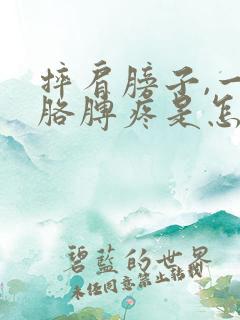 摔肩膀子,一
胳膊疼是怎
碧蓝的世界
未经同意禁止转载